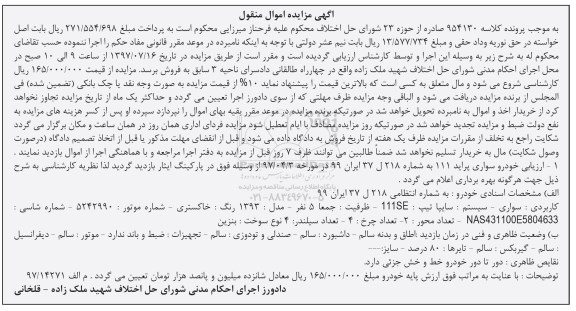 آگهی مزایده اموال منقول
به موجب پرونده کلاسه ۹۵۴۱۳۰ صادره از حوزه ۲۳ شورای حل اختلاف محکوم علیه فرحناز میرزایی محکوم است به پرداخت مبلغ ۲۷۱/۵۵۴/۶۹۸ ریال بابت اصل
خواسته در حق نوریه وداد حقی و مبلغ ۱۳/۵۷۷/۷۳۴ ریال بابت نیم عشر دولتی با توجه به اینکه نامبرده در موعد مقرر قانونی مفاد حکم را اجرا ننموده حسب تقاضای
محکوم له به شرح زیر به وسیله این اجرا و توسط کارشناس ارزیابی گردیده است و مقرر است از طریق مزایده در تاریخ ۱۳۹۷/۰۷/۱۶ از ساعت ۹ الی ۱۰ صبح در
محل اجرای احکام مدنی شورای حل اختلاف شهید ملک زاده واقع در چهارراه طالقانی دادسرای ناحیه ۳ سابق به فروش برسد. مزایده از قیمت ۱۶۵/۰۰۰/۰۰۰ ریال
کارشناسی شروع می شود و مال متعلق به کسی است که بالاترین قیمت را پیشنهاد نماید ۱۰% از قیمت مزایده به صورت وجه نقد یا چک بانکی (تضمین شده) فی
المجلس از برنده مزایده دریافت می شود و الباقی وجه مزایده ظرف مهلتی که از سوی دادورز اجرا تعیین می گردد و حداکثر یک ماه از تاریخ مزایده تجاوز نخواهد
کرد از خریدار اخذ و اموال به نامبرده تحویل خواهد شد در صورتیکه برنده مزایده در موعد مقرر بقیه بهای اموال را نپردازد سپرده او پس از کسر هزینه های مزایده به
نفع دولت ضبط و مزایده تجدید خواهد شد در صورتیکه روز مزایده مصادف با ایام تعطیل شود مزایده فردای اداری همان روز در همان ساعت و مکان برگزار می گردد
شکایت راجع به تخلف از مقررات مزایده ظرف یک هفته از تاریخ فروش به دادگاه داده می شود و قبل از انقضای مهلت مذکور یا قبل از اتخاذ تصمیم دادگاه (درصورت
وصول شکایت) مال به خریدار تسلیم نخواهد شد ضمنا طالبین می توانند ظرف ۷ روز قبل از مزایده به دفتر اجرا مراجعه و با هماهنگی اجرا از اموال بازدید نمایند .
۱- ارزیابی خودرو سواری پراید ۱۱۱ به شماره ۲۱۸ ل ۳۷ ایران ۹۹ در مورخه ۹۷/۰۴/۳ از وسیله فوق در پارکینگ ایثار بازدید گردید لذا نظریه کارشناسی به شرح
ذیل جهت هرگونه بهره برداری اعلام می گردد .
الف) مشخصات اسنادی خودرو : به شماره انتظامی ۲۱۸ ل ۳۷ ایران ۹۹
کاربردی : سواری - سیستم : سایپا تیپ : 111SE - ظرفیت : جمعا ۵ نفر - مدل : ۱۳۹۳ رنگ : خاکستری - شماره موتور : ۵۲۴۲۹۹۰ - شماره شاسی :
NAS431100E5804633 - تعداد محور : ۲ - تعداد چرخ : ۴ - تعداد سیلندر: ۴ نوع سوخت : بنزین
ب) وضعیت ظاهری و فنی در زمان بازدید :اطاق و بدنه سالم - داشبورد : سالم - صندلی و تودوزی : سالم - تجهیزات : ضبط و باند ندارد - موتور : سالم - دیفرانسیل
: سالم - گیربکس : سالم - تایرها : ۸۰ درصد - سایز:---
نقایص ظاهری : دور تا دور خودرو خط و خش جزئی دارد.
توضیحات : با عنایت به مراتب فوق ارزش پایه خودرو مبلغ ۱۶۵/۰۰۰/۰۰۰ ریال معادل شانزده میلیون و پانصد هزار تومان تعیین می گردد . م الف ۹۷/۱۴۲۷۱
دادورز اجرای احکام مدنی شورای حل اختلاف شهید ملک زاده - قلخانی